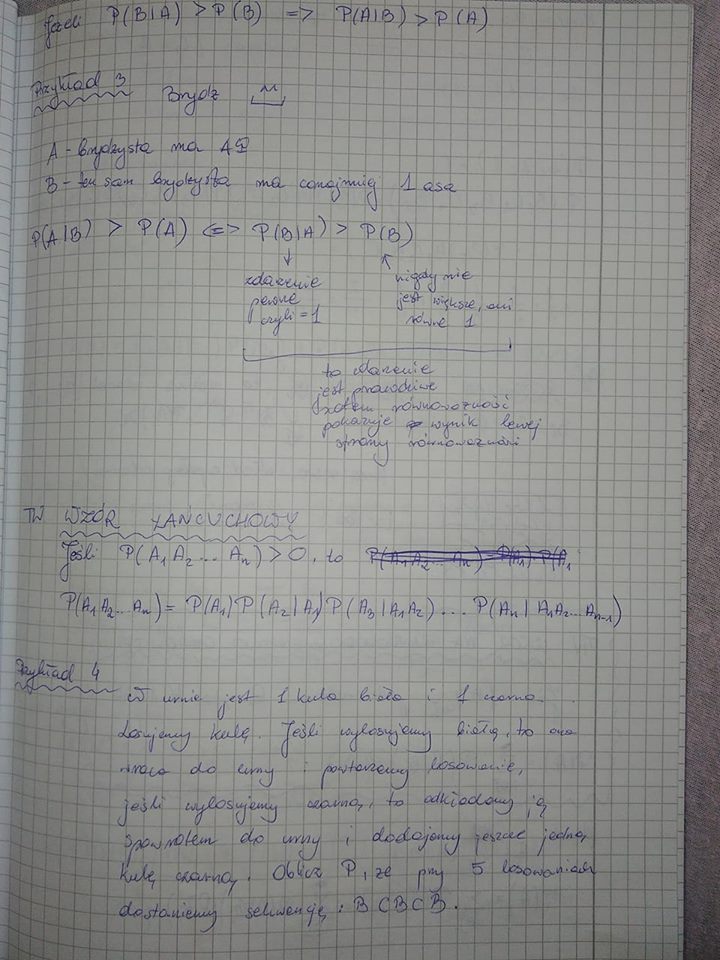 Jeśli P(B|A) > P(B) => P(A|B) > P(A)
Przykład 3 Brydż
A - brydżysta ma A
B - ten sam brydżysta ma conajmniej 1 asa
P(A|B) > P(A) <=> P(B|A) > P(B)
zdarzenie
pewne
czyli = 1
nigdy nie
jest większe, ani
równe 1
to zdarzenie
jest prawdziwe
zatem równoważność
pokazuje wynik lewej
strony równoważności
TW WZÓR ŁAŃCUCHOWY
Jeśli P(A₁A₂...Aₙ) > 0, to
P(A₁A₂...Aₙ) = P(A₁)P(A₂|A₁)P(A₃|A₁A₂)...P(Aₙ|A₁A₂...Aₙ₋₁)
Przykład 4
W urnie jest 1 kula biała i 1 czarna.
Losujemy kulę. Jeśli wylosujemy białą, to ona
wraca do urny i powtarzamy losowanie,
jeśli wylosujemy czarną, to odkładamy ją
spowrotem do urny i dodajemy jeszcze jedną
kulę czarną. Oblicz P, że przy 5 losowaniach
dostaniemy sekwencję: BCBCB.